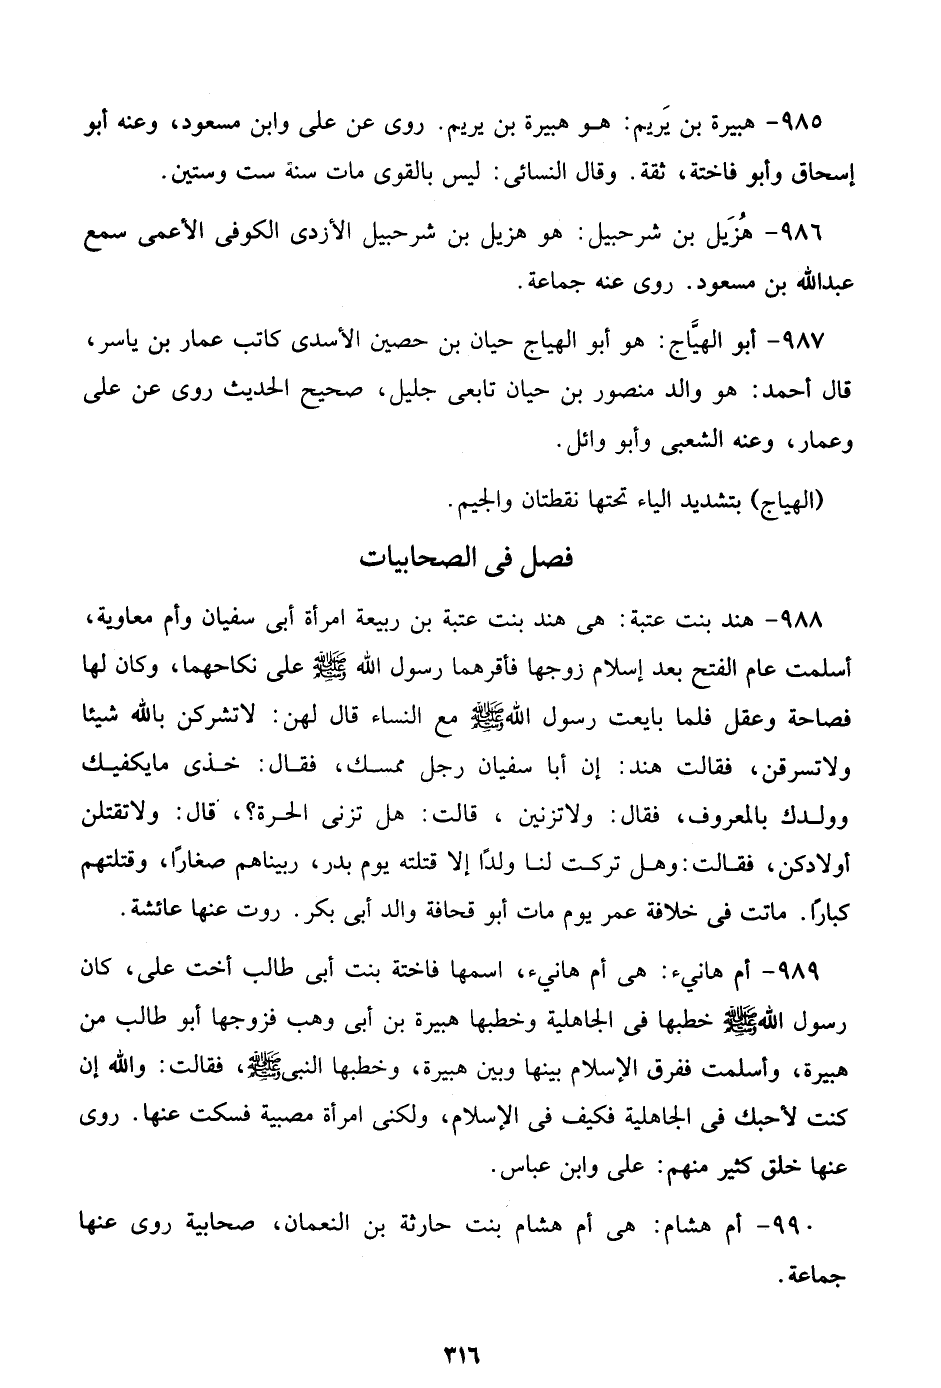 ٩٨٥- هبيرة بن يَريم: هـو هبيرة بن يريم. روى عن على وابن مسعود، وعنه أبو
إسحاق وأبو فاختة، ثقة. وقال النسائى: ليس بالقوى مات سنة ست وستين.
٩٨٦- هُزَيل بن شرحبيل: هو هزيل بن شرحبيل الأزدى الكوفى الأعمى سمع
عبدالله بن مسعود. روى عنه جماعة.
٩٨٧- أبو الهيَّاج: هو أبو الهياج حيان بن حصين الأسدى كاتب عمار بن ياسر،
قال أحمد: هو والد منصور بن حيان تابعى جليل، صحيح الحديث روى عن على
وعمار، وعنه الشعبى وأبو وائل.
(الهياج) بتشديد الياء تحتها نقطتان والجيم.
فصل فى الصحابيات
٩٨٨- هند بنت عتبة: هى هند بنت عتبة بن ربيعة امرأة أبى سفيان وأم معاوية،
أسلمت عام الفتح بعد إسلام زوجها فأقرهما رسول الله ﷺ على نكاحهما، وكان لها
فصاحة وعقل فلما بايعت رسول الله ﷺ مع النساء قال لهن: لاتشركن بالله شيئا
ولاتسرقن، فقالت هند: إن أبا سفيان رجل ممسك، فقال: خذى مايكفيك
وولدك بالمعروف، فقال: ولاتزنين ، قالت: هل تزنى الحرة؟، قال: ولاتقتلن
أولادكن، فقالت: وهل تركت لنا ولدًا إلا قتلته يوم بدر، ربيناهم صغارًا، وقتلتهم
كبارًا. ماتت فى خلافة عمر يوم مات أبو قحافة والد أبى بكر. روت عنها عائشة.
٩٨٩- أم هانيء: هى أم هانيء، اسمها فاختة بنت أبى طالب أخت على، كان
رسول الله ﷺ خطبها فى الجاهلية وخطبها هبيرة بن أبى وهب فزوجها أبو طالب من
هبيرة، وأسلمت ففرق الإسلام بينها وبين هبيرة، وخطبها النبى ﷺ، فقالت: والله إن
كنت لأحبك فى الجاهلية فكيف فى الإسلام، ولكنى امرأة مصبية فسكت عنها. روى
عنها خلق كثير منهم: على وابن عباس.
٩٩٠- أم هشام: هى أم هشام بنت حارثة بن النعمان، صحابية روى عنها
جماعة.
٣١٦